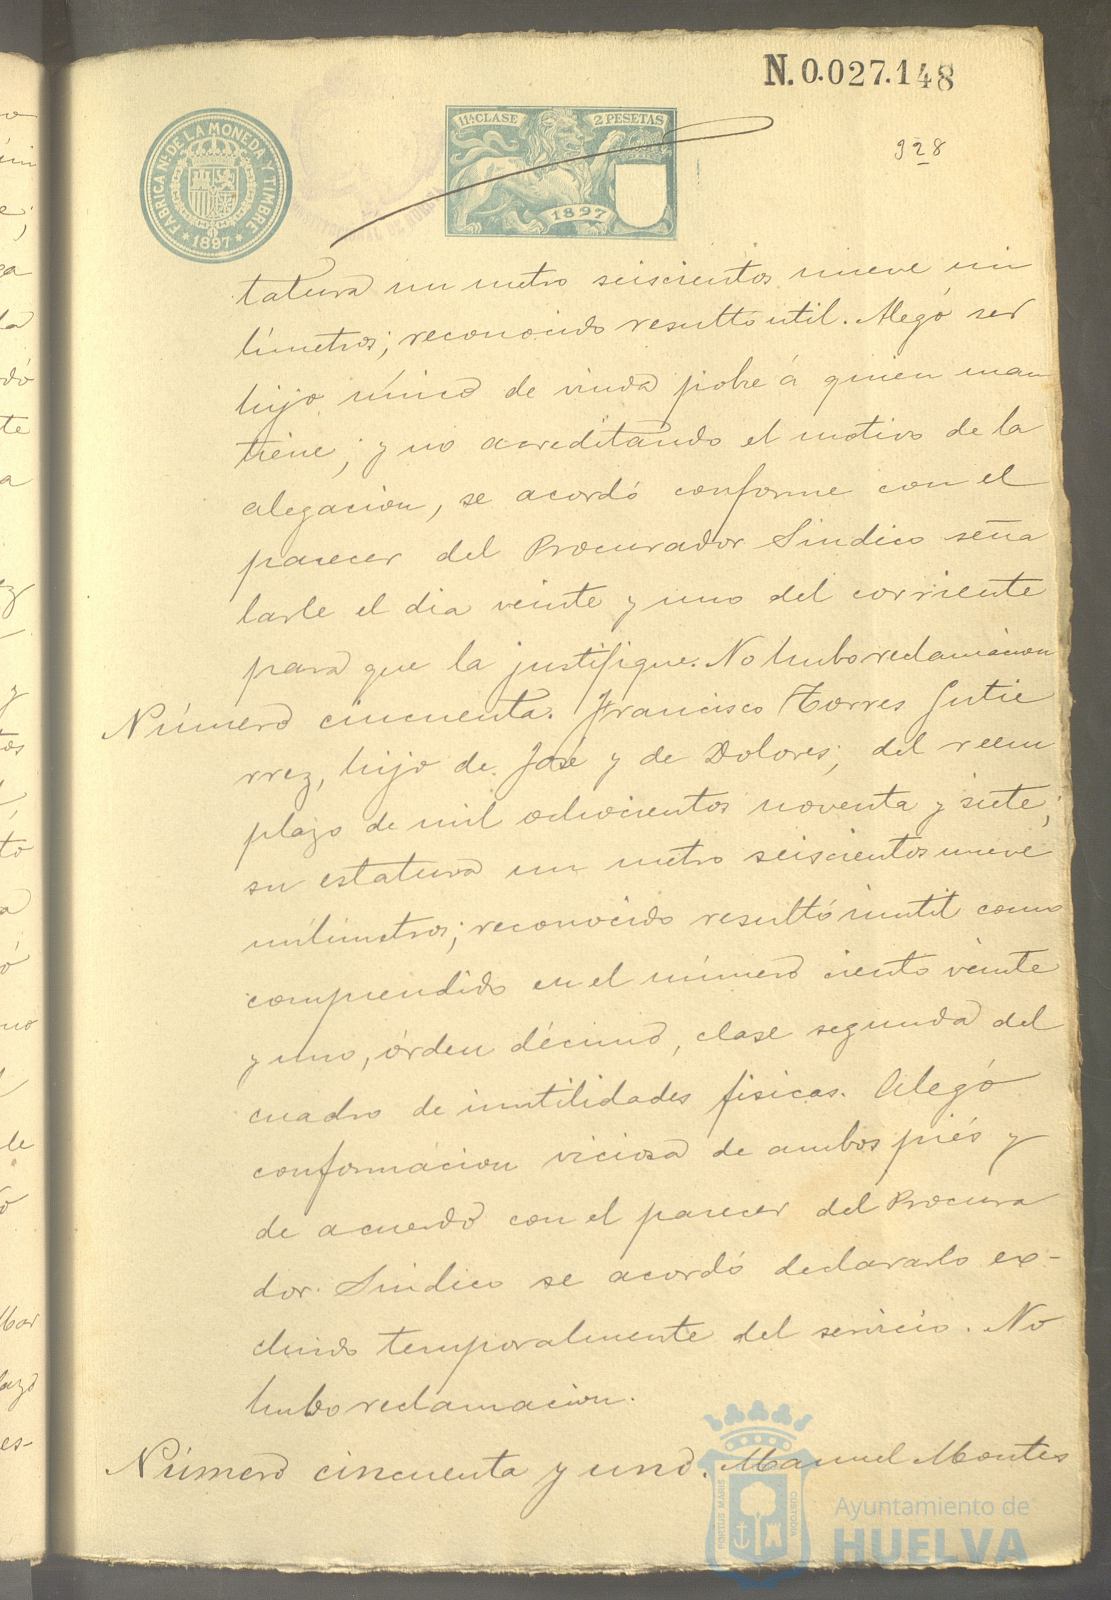 N. 0.027.148
928
FABRICA Nal. DE LA MONEDA Y TIMBRE
1897
11ª CLASE
2 PESETAS
1897
tatura un metro seiscientos nueve mi
límetros; reconocido resultó util. Alegó ser
hijo único de viuda pobre á quien man
tiene; y no acreditando el motivo de la
alegación, se acordó conforme con el
parecer del Procurador Sindico seña
larle el dia veinte y uno del corriente
para que la justifique. No hubo reclamacion
Número cincuenta. Francisco Torres Gutie
rrez, hijo de José y de Dolores, del reem
plazo de mil ochocientos noventa y siete;
su estatura un metro seiscientos nueve
milimetros; reconocido resultó inutil como
comprendido en el número ciento veinte
y uno, órden décimo, clase segunda del
cuadro de inutilidades fisicas. Alegó
conformacion viciosa de ambos piés y
de acuerdo con el parecer del Procura
dor Sindico se acordó declararlo ex-
cluido temporalmente del servicio. No
hubo reclamacion.
Número cincuenta y uno. Manuel Montes
PORTUS MARIS
CUSTODIA
Ayuntamiento de
HUELVA